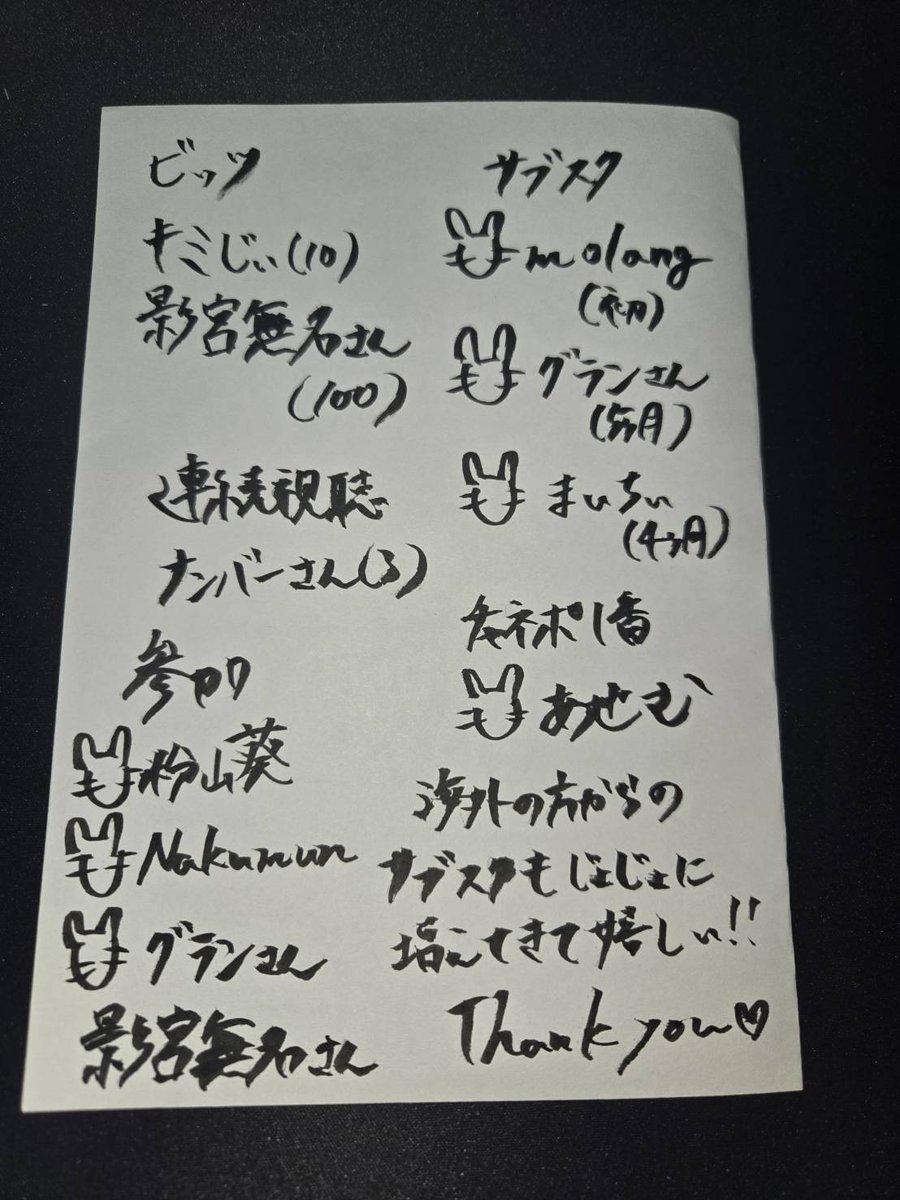 ビッツ
キミじぃ(10)
影宮無名さん
(100)
連続視聴
ナンバーさん(3)
参加
粉山葵
Nakumun
グランさん
影宮無名さん
サブスク
molang
(初)
グランさん
(5ヶ月)
まいちぃ
(4ヶ月)
チャネポ1番
あせむ
海外の方からの
サブスクもじょじょに
増えてきて嬉しい!!
Thank you♡